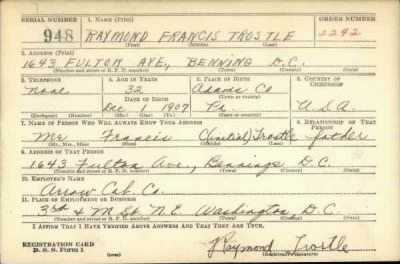 SERIAL NUMBER 1. NAME (Print) ORDER NUMBER
948 RAYMOND FRANCIS TROSTLE 2292
(First) (Middle) (Last)
2. ADDRESS (Print)
1643 FULTON AVE, BENNING D.C.
(Number and street or R. F. D. number) (Town) (County) (State)
3. TELEPHONE 4. AGE IN YEARS 5. PLACE OF BIRTH 6. COUNTRY OF CITIZENSHIP
None 32 Adams Co
DATE OF BIRTH (Town or county)
Dec 1 1907 Pa. U.S.A.
(Exchange) (No.) (Mo.) (Day) (Yr.) (State or country)
7. NAME OF PERSON WHO WILL ALWAYS KNOW YOUR ADDRESS 8. RELATIONSHIP OF THAT PERSON
Mr. Francis (initial) Trostle father
(Mr., Mrs., Miss) (First) (Middle) (Last)
9. ADDRESS OF THAT PERSON
1643 Fulton Ave., Bennings D.C.
(Number and street or R. F. D. number) (Town) (County) (State)
10. EMPLOYER'S NAME
Arrow Cab. Co.
11. PLACE OF EMPLOYMENT OR BUSINESS
3rd & M St. N.E. Washington D.C.
(Number and street or R. F. D. number) (Town) (County) (State)
I AFFIRM THAT I HAVE VERIFIED ABOVE ANSWERS AND THAT THEY ARE TRUE.
REGISTRATION CARD
D. S. S. Form 1 Raymond Trostle
(Registrant's signature)